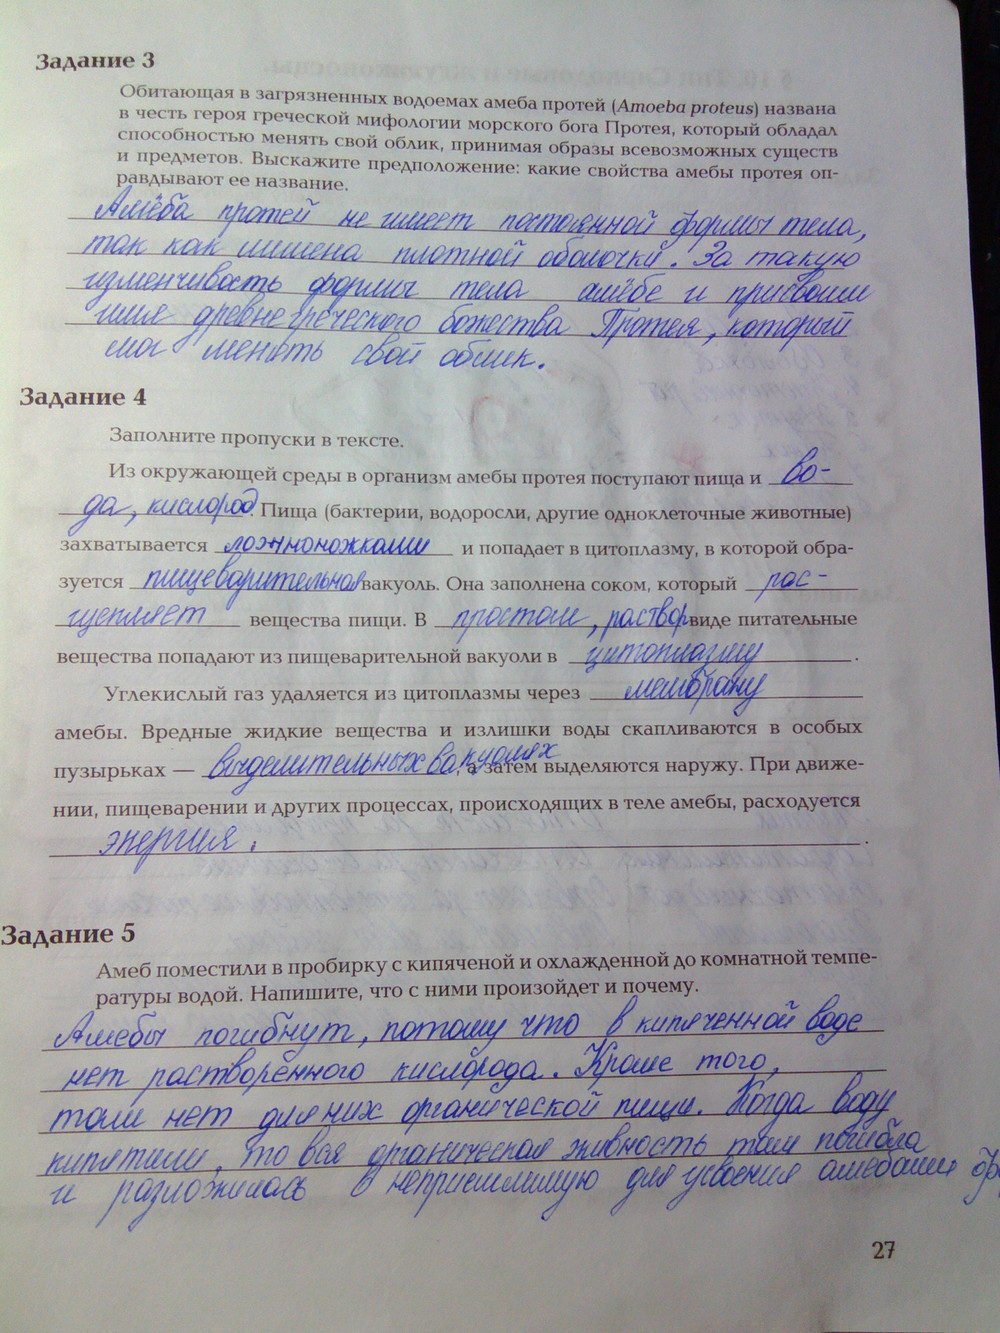 Задание 3
Обитающая в загрязненных водоемах амеба протей (Amoeba proteus) названа
в честь героя греческой мифологии морского бога Протея, который обладал
способностью менять свой облик, принимая образы всевозможных существ
и предметов. Выскажите предположение: какие свойства амебы протея оп-
равдывают ее название.
Амёба протей не имеет постоянной формы тела,
так как лишена плотной оболочки. За такую
изменчивость формы тела амёбе и присвоили
имя древнегреческого божества Протея, который
мог менять свой облик.
Задание 4
Заполните пропуски в тексте.
Из окружающей среды в организм амебы протея поступают пища и во-
да, кислород. Пища (бактерии, водоросли, другие одноклеточные животные)
захватывается ложноножками и попадает в цитоплазму, в которой обра-
зуется пищеварительная вакуоль. Она заполнена соком, который рас-
щепляет вещества пищи. В простом, раствор виде питательные
вещества попадают из пищеварительной вакуоли в цитоплазму.
Углекислый газ удаляется из цитоплазмы через мембрану
амебы. Вредные жидкие вещества и излишки воды скапливаются в особых
пузырьках — выделительных вакуолях, а затем выделяются наружу. При движе-
нии, пищеварении и других процессах, происходящих в теле амебы, расходуется
энергия.
Задание 5
Амеб поместили в пробирку с кипяченой и охлажденной до комнатной темпе-
ратуры водой. Напишите, что с ними произойдет и почему.
Амёбы погибнут, потому что в кипяченной воде
нет растворённого кислорода. Кроме того,
там нет для них органической пищи. Когда воду
кипятили, то вся органическая живность там погибла
и разложилась в неприемлимую для усвоения амебами
27